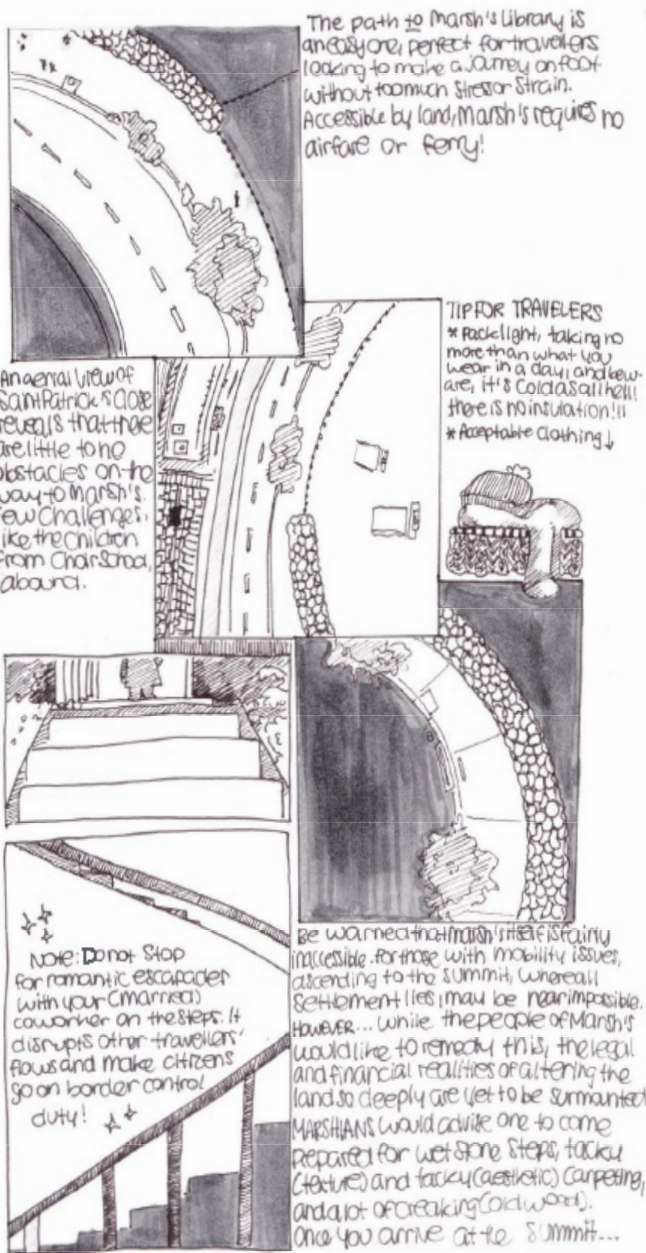 The path to Marsh's Library is
an easy one, perfect for travellers
looking to make a journey on foot
without too much stress or strain.
Accessible by land, Marsh's requires no
airfare or ferry!
TIP FOR TRAVELERS
* Pack light, taking no
more than what you
wear in a day, and bew-
are, it's cold as all hell!
there is no insulation!!!
* Acceptable clothing ↓
An aerial view of
Saint Patrick's Close
reveals that there
are little to no
obstacles on the
way to Marsh's.
Few challenges,
like the children
from Choir School,
abound.
Note: Do not stop
for romantic escapades
with your (married)
coworker on the steps. It
disrupts other travellers'
flows and make citizens
go on border control
duty!
Be warned that Marsh's itself is fairly
inaccessible. For those with mobility issues,
ascending to the summit, where all
settlement lies, may be near impossible.
HOWEVER... while the people of Marsh's
would like to remedy this, the legal
and financial realities of altering the
land so deeply are yet to be surmounted
MARSHIANS would advise one to come
prepared for wet stone steps, tacky
(texture) and tacky (aesthetic) carpeting,
and a lot of creaking (old wood).
Once you arrive at the summit...